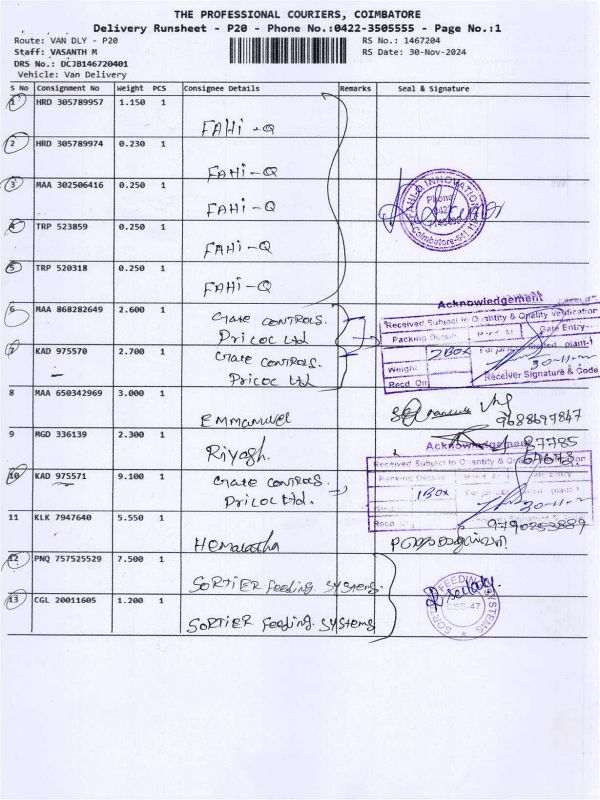 THE PROFESSIONAL COURIERS, COIMBATORE
Delivery Runsheet - P20 - Phone No.:0422-3505555 - Page No.:1
Route: VAN DLY - P20 RS No.: 1467204
Staff: VASANTH M RS Date: 30-Nov-2024
DRS No.: DCJB146720401
Vehicle: Van Delivery
S No Consignment No Weight PCS Consignee Details Remarks Seal & Signature
1 HRD 305789957 1.150 1
FAHi-Q
2 HRD 305789974 0.230 1
FAHi-Q
3 MAA 302506416 0.250 1
FAHi-Q
4 TRP 523859 0.250 1
FAHi-Q
5 TRP 520318 0.250 1
FAHi-Q
6 MAA 868282649 2.600 1
Crate CONTROLS.
Pricol Ltd
7 KAD 975570 2.700 1
Crate CONTROLS.
Pricol Ltd
Acknowledgement
Received Subject to Quantity & Quality Verification
Packing Details Gate Entry
2BOX plant-1
Weight 30-11-
Recd. On Receiver Signature & Code
8 MAA 650342969 3.000 1
Emmanuel
9688697847
9 MGD 336139 2.300 1
Riyash.
87785
67673
10 KAD 975571 9.100 1
Crate CONTROLS.
Pricol Ltd.
Acknowledgement
Received Subject to Quantity & Quality
Packing Details
1BOX plant-1
Weight 30-11-
11 KLK 7947640 5.550 1
Hemalatha
9790253889
12 PNQ 757525529 7.500 1
SORTIER Feeding. SYSTEMS.
13 CGL 20011605 1.200 1
SORTIER Feeding. SYSTEMS